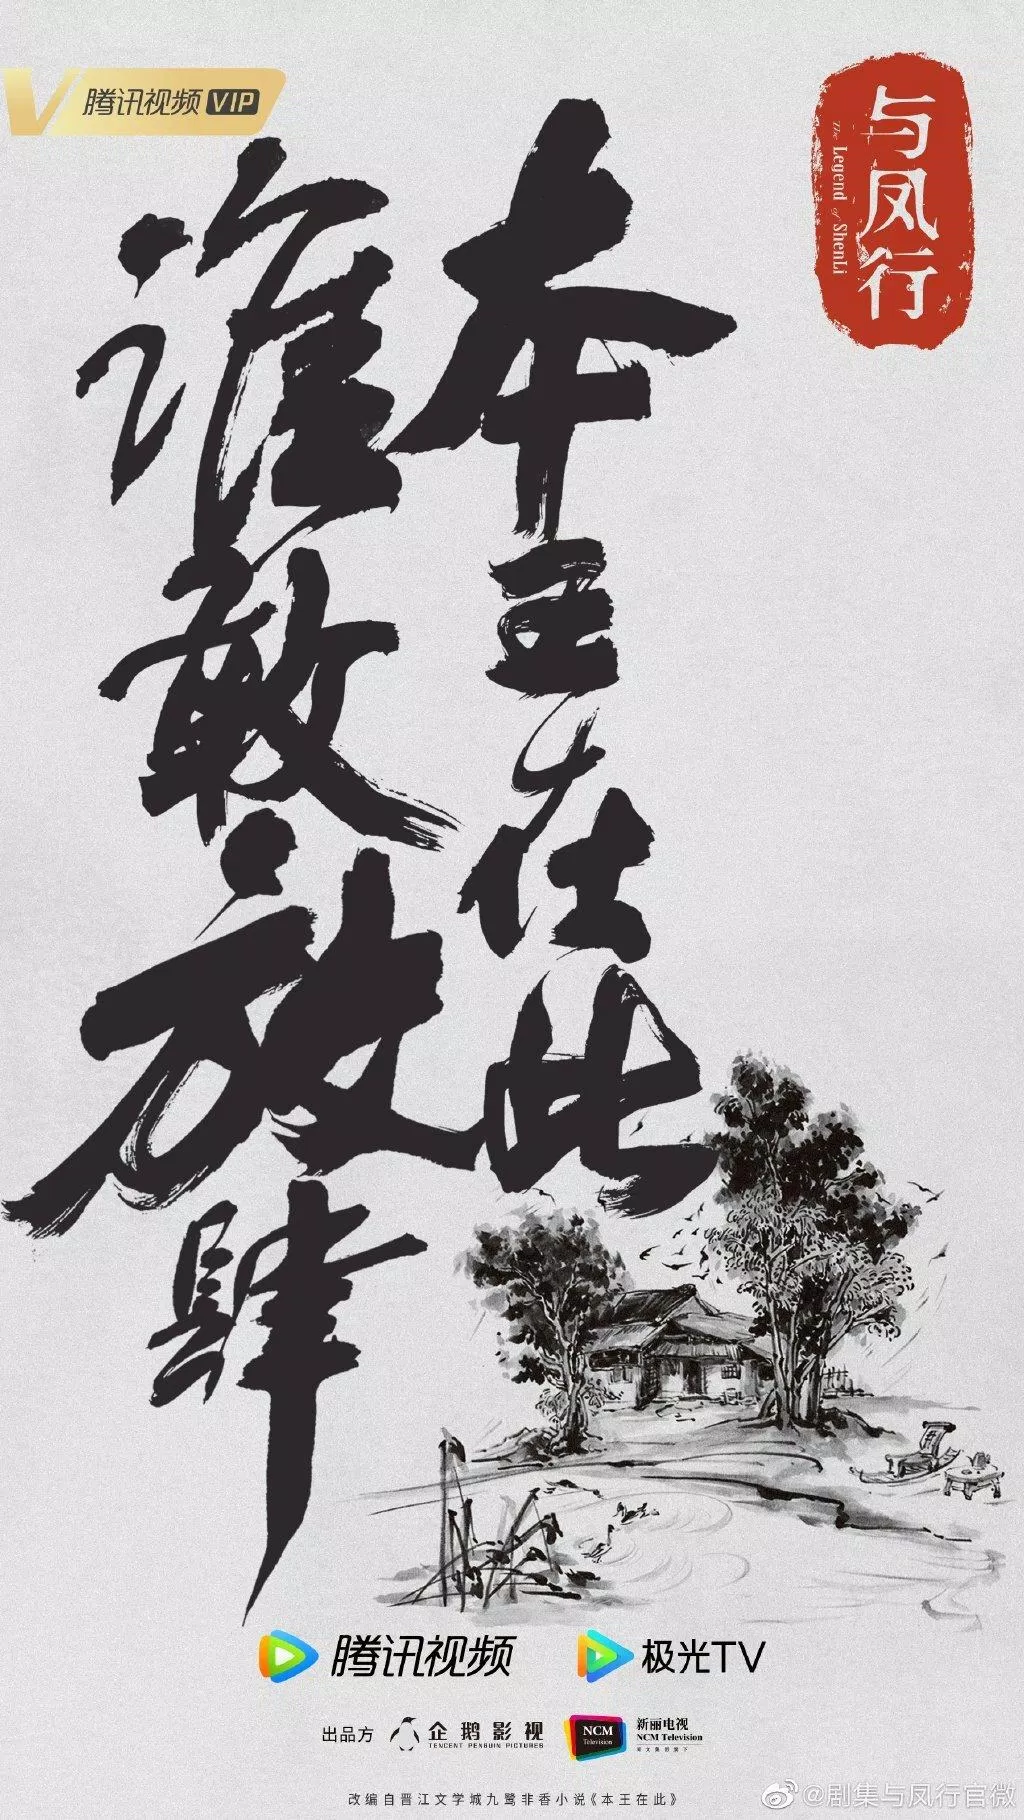 腾讯视频 VIP
与凤行
The Legend of ShenLi
本王在此
谁敢放肆
腾讯视频
极光TV
出品方
企鹅影视
TENCENT PENGUIN PICTURES
NCM
Television
新丽电视
NCM Television
改编自晋江文学城九鹭非香小说《本王在此》
@剧集与凤行官微